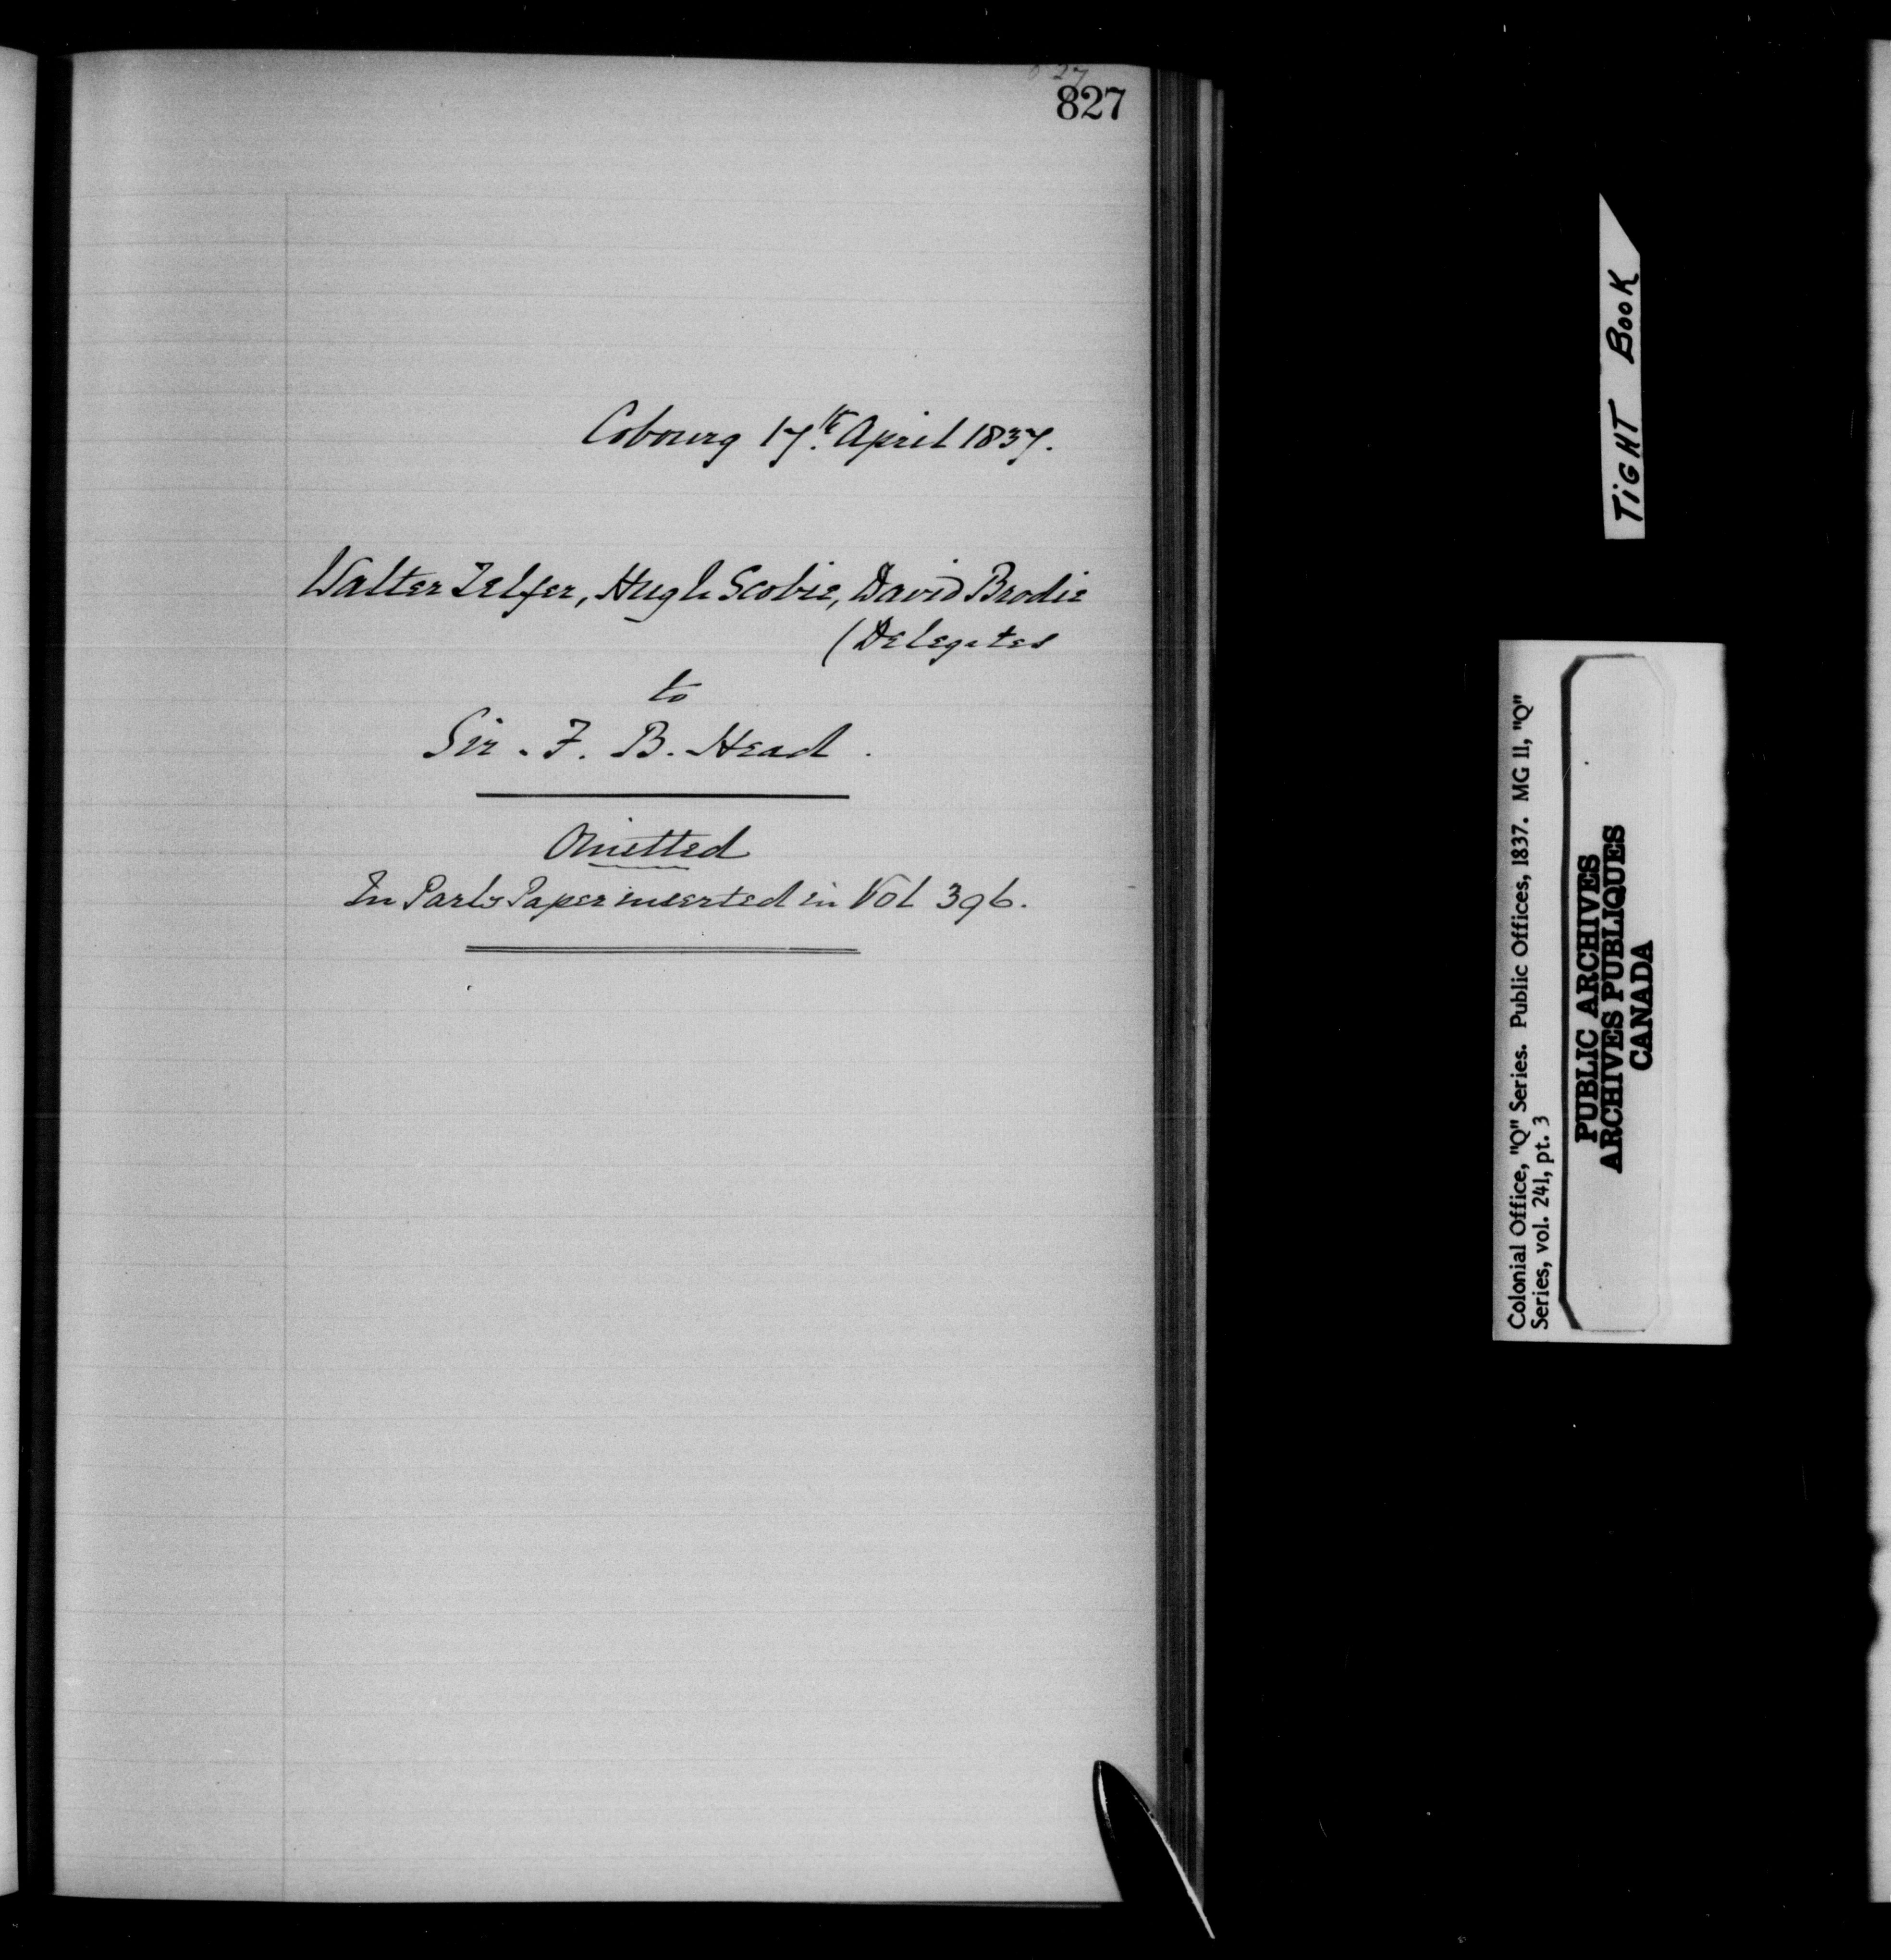 827
827
Cobourg 17th. April 1837.
Walter Telfer, Hugh Scobie, David Brodie
(Delegates
to
Sir. F. B. Head.
Omitted
In Parly Paper inserted in Vol 396.
TiGHT BOOK
Colonial Office, "Q" Series. Public Offices, 1837. MG 11, "Q"
Series, vol. 241, pt. 3
PUBLIC ARCHIVES
ARCHIVES PUBLIQUES
CANADA